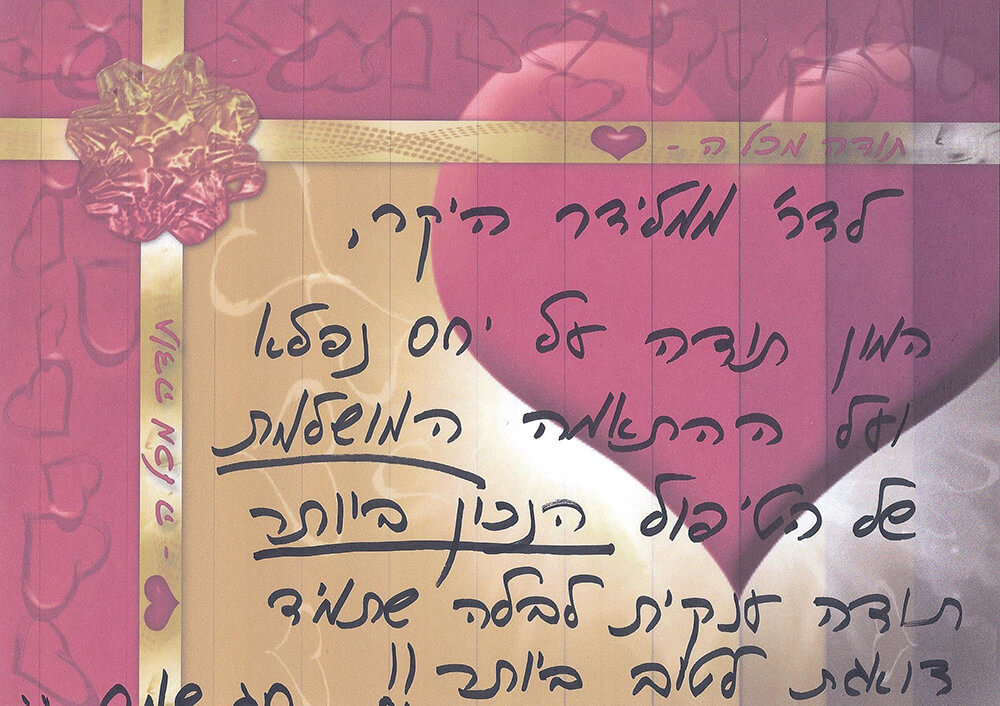 תודה מכל ה -
לדר' ממלידר היקר,
המון תודה על יחס נפלא
ועל ההתאמה המושלמת
של הטיפול הנכון ביותר
תודה ענקית לבלה שתמיד
דואגת לטוב ביותר !!
חג שמח
תודה מכל ה -